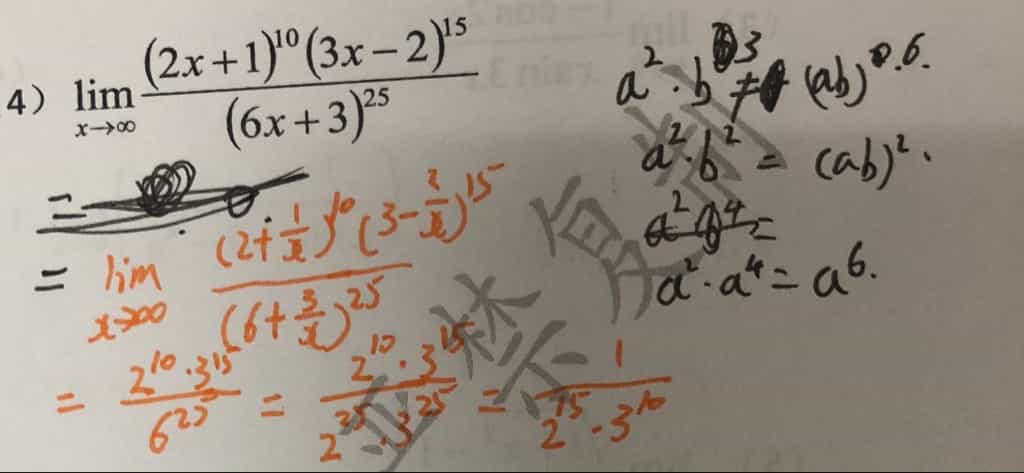 4) lim x→∞ (2x+1)^10 (3x−2)^15 / (6x+3)^25
= lim x→∞ (2+1/x)^10 (3−2/x)^15 / (6+3/x)^25
= 2^10·3^15 / 6^25 = 2^10·3^15 / 2^25·3^25 = 1 / 2^15·3^10
a^2·b^3 ≠ (ab)^6.
a^2·b^2 = (ab)^2.
a^2·a^4 = a^6.